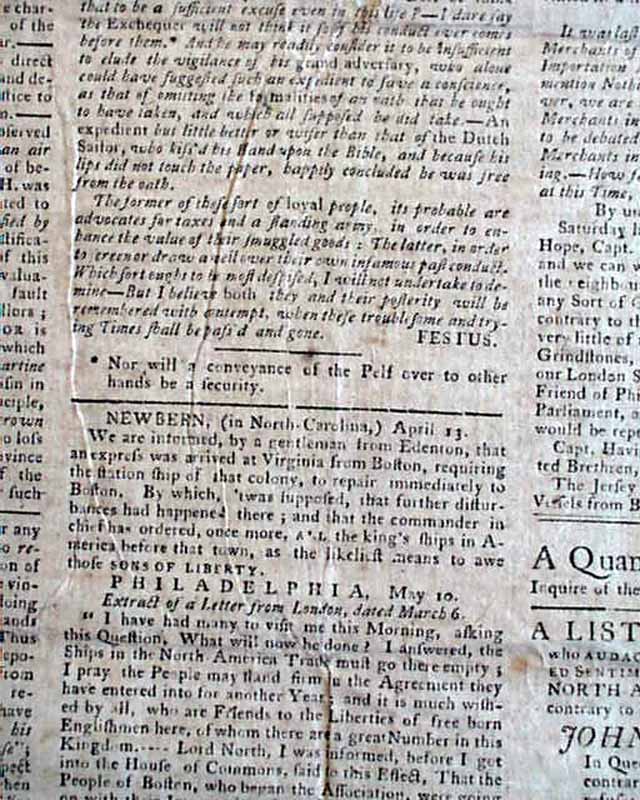 e char-
of the
ar.——
direct
and de-
ffice to
observed
an air
of be-
H. was
ated to
fied by
of this
fault
llors ;
is
which
artine
sin in
ciple,
rown
o loss
ovince
f the
such
r any
o re-
on of
e vin-
doing
ands
Thus
epo-
from
re-
have
his
spect
hen
that to be a sufficient excuse even in this life ?—I dare say
the Exchequer will not think it so if his conduct ever comes
before them.* And he may readily consider it to be insufficient
to elude the vigilance of his grand adversary, who alone
could have suggested such an expedient to save a conscience,
as that of omitting the formalities of an oath that he ought
to have taken, and which all supposed he did take.—An
expedient but little better or wiser than that of the Dutch
Sailor, who kiss'd his Hand upon the Bible, and because his
lips did not touch the paper, happily concluded he was free
from the oath.
The former of those sort of loyal people, its probable are
advocates for taxes and a standing army, in order to en-
hance the value of their smuggled goods : The latter, in order
to screen or draw a veil over their own infamous past conduct.
Which sort ought to be most despised, I will not undertake to de-
mine—But I believe both they and their posterity will be
remembered with contempt, when these troublesome and try-
ing Times shall be pass'd and gone. FESTUS.
* Nor will a conveyance of the Pelf over to other
hands be a security.
NEWBERN, (in North-Carolina,) April 13.
We are informed, by a gentleman from Edenton, that
an express was arrived at Virginia from Boston, requiring
the station ship of that colony, to repair immediately to
Boston. By which, 'twas supposed, that further distur-
bances had happened there ; and that the commander in
chief has ordered, once more, ALL the king's ships in A-
merica before that town, as the likeliest means to awe
those SONS OF LIBERTY.
PHILADELPHIA, May 10.
Extract of a Letter from London, dated March 6.
" I have had many to visit me this Morning, asking
this Question, What will now be done ? I answered, the
Ships in the North America Trade must go there empty ;
I pray the People may stand firm in the Agreement they
have entered into for another Year ; and it is much wish-
ed by all, who are Friends to the Liberties of free born
Englishmen here, of whom there are a great Number in this
Kingdom.---- Lord North, I was informed, before I got
into the House of Commons, said to this Effect, That the
People of Boston, who began the Association, were going
It was last
Merchants of
Importation
mention Noth
ver, we are
Merchants in
to be debated
Merchants in
ing.—How f
at this Time,
By
Saturday l
Hope, Capt.
and we can
the neighbou
any Sort of
contrary to th
very little of
Grindstones,
our London S
Friend of Phi
Parliament,
would be repe
Capt. Havi
ted Brethren
The Jersey
Vessels from B
A Quan
Inquire of the
A LIST
who AUDAC
ED SENTIM
NORTH A
contrary to
JOHN
In Que
contrar